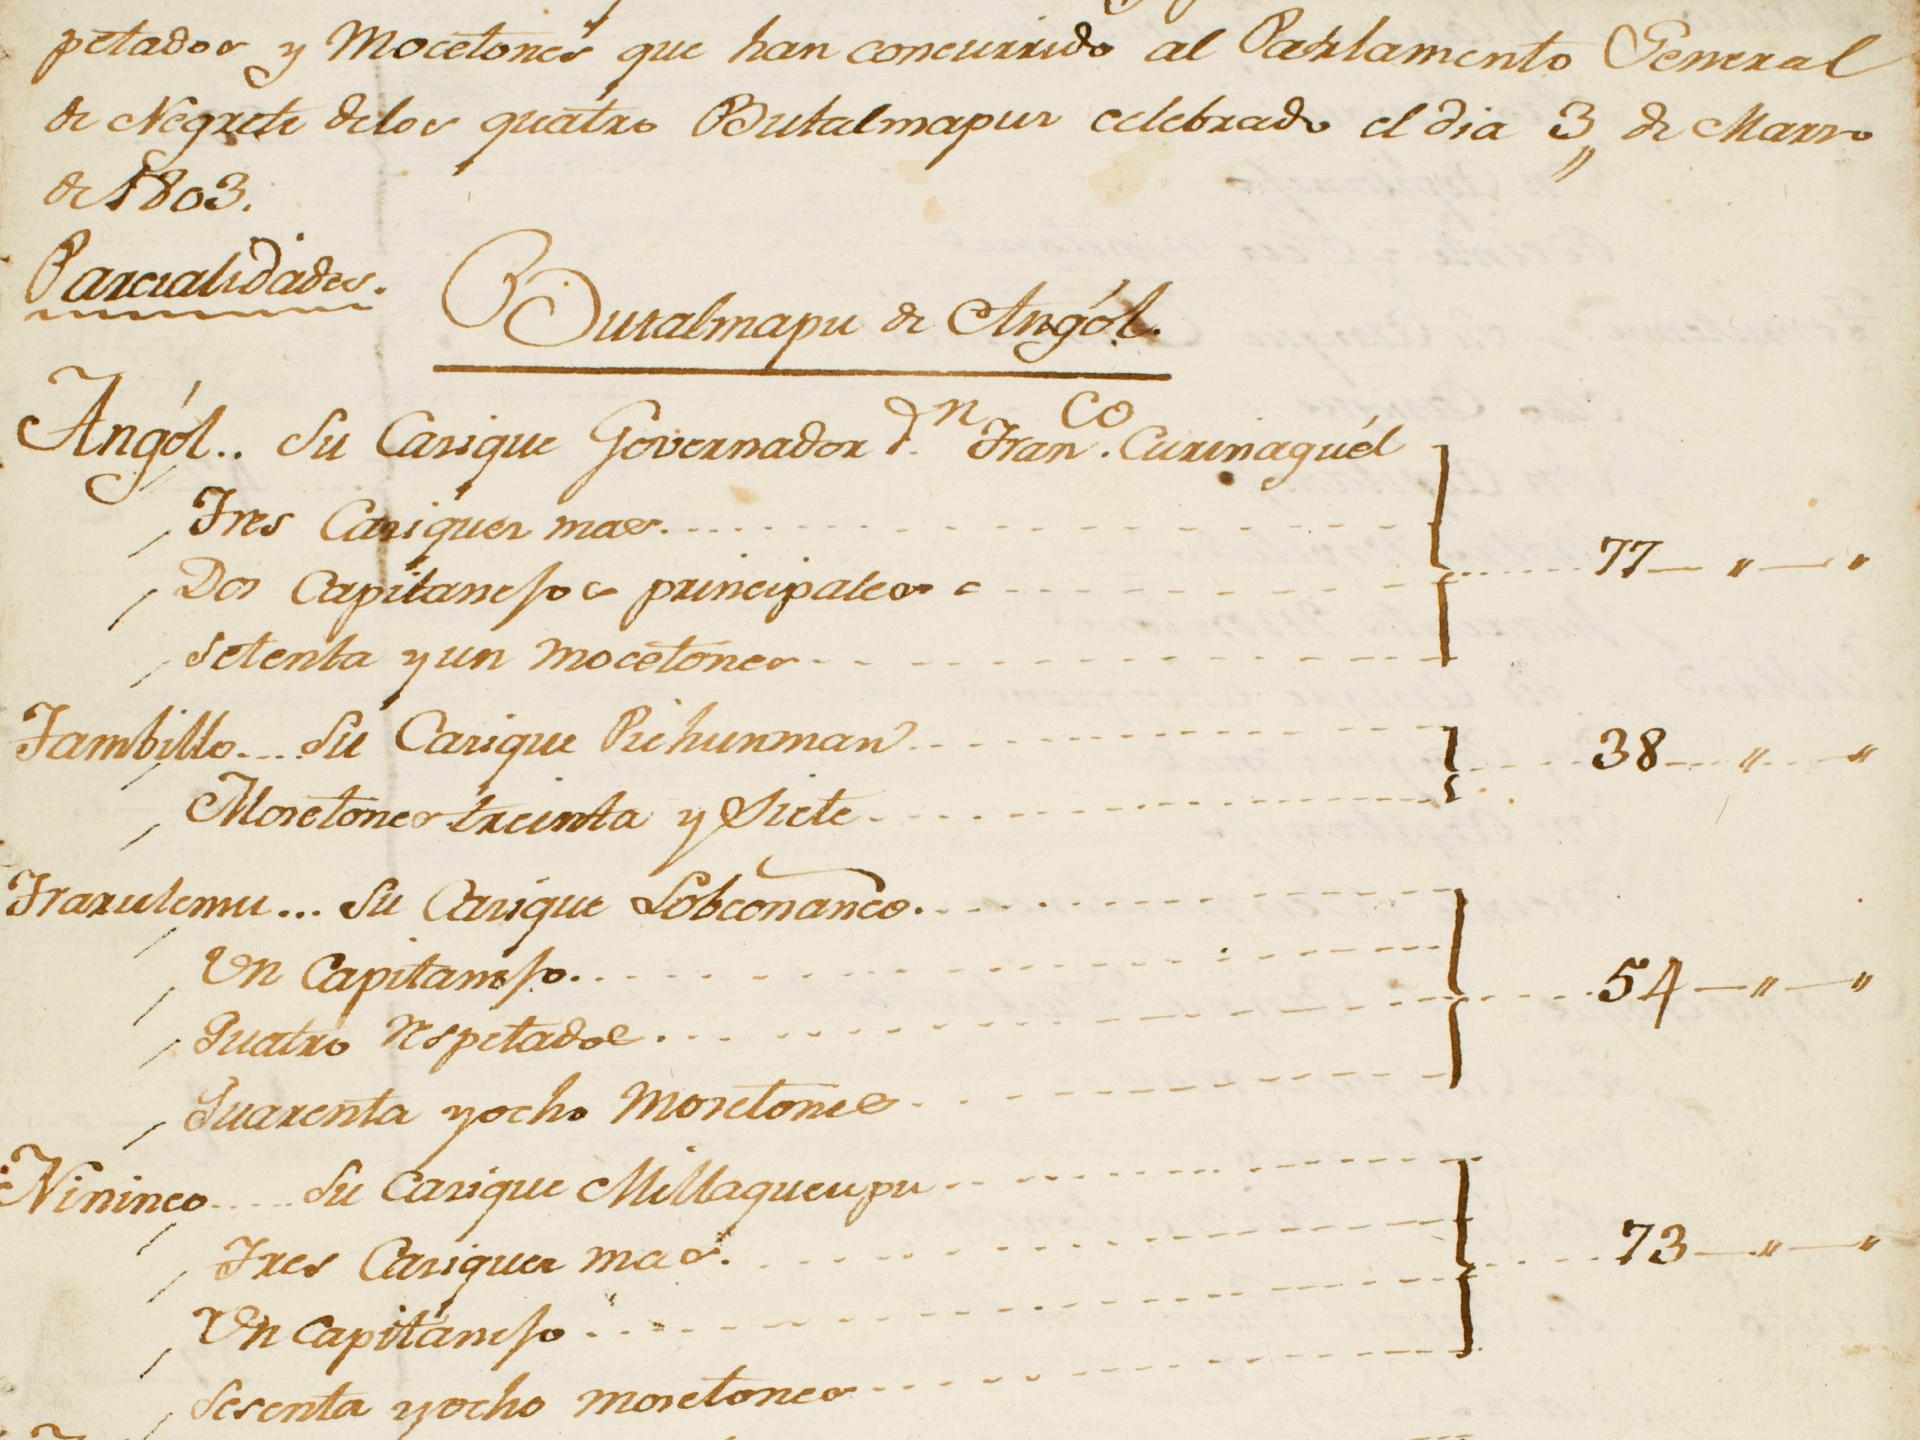 petados y Mocetones que han concurrido al Parlamento General
de Negrete delos quatro Butalmapus celebrado el dia 3,, de Marzo
de 1803.
Parcialidades.
Butalmapu de Angól.
Angól.. Su Casique Governador Dn. Franco. Curinaguél
Tres Casiques mas.
Dos Capitanejos principales
setenta y un mocetones
77 — " — "
Tambillo... Su Casique Pichunman
Mosetones treinta y Siete
38 — " — "
Trarulemu... Su Casique Lobconanco.
Un Capitanejo.
Quatro Respetados.
Quarenta y ocho Mosetones
54 — " — "
Nininco.... Su Casique Millaqueupu
Tres Casiques mas.
Un Capitanejo
sesenta y ocho mosetones
73 — " — "